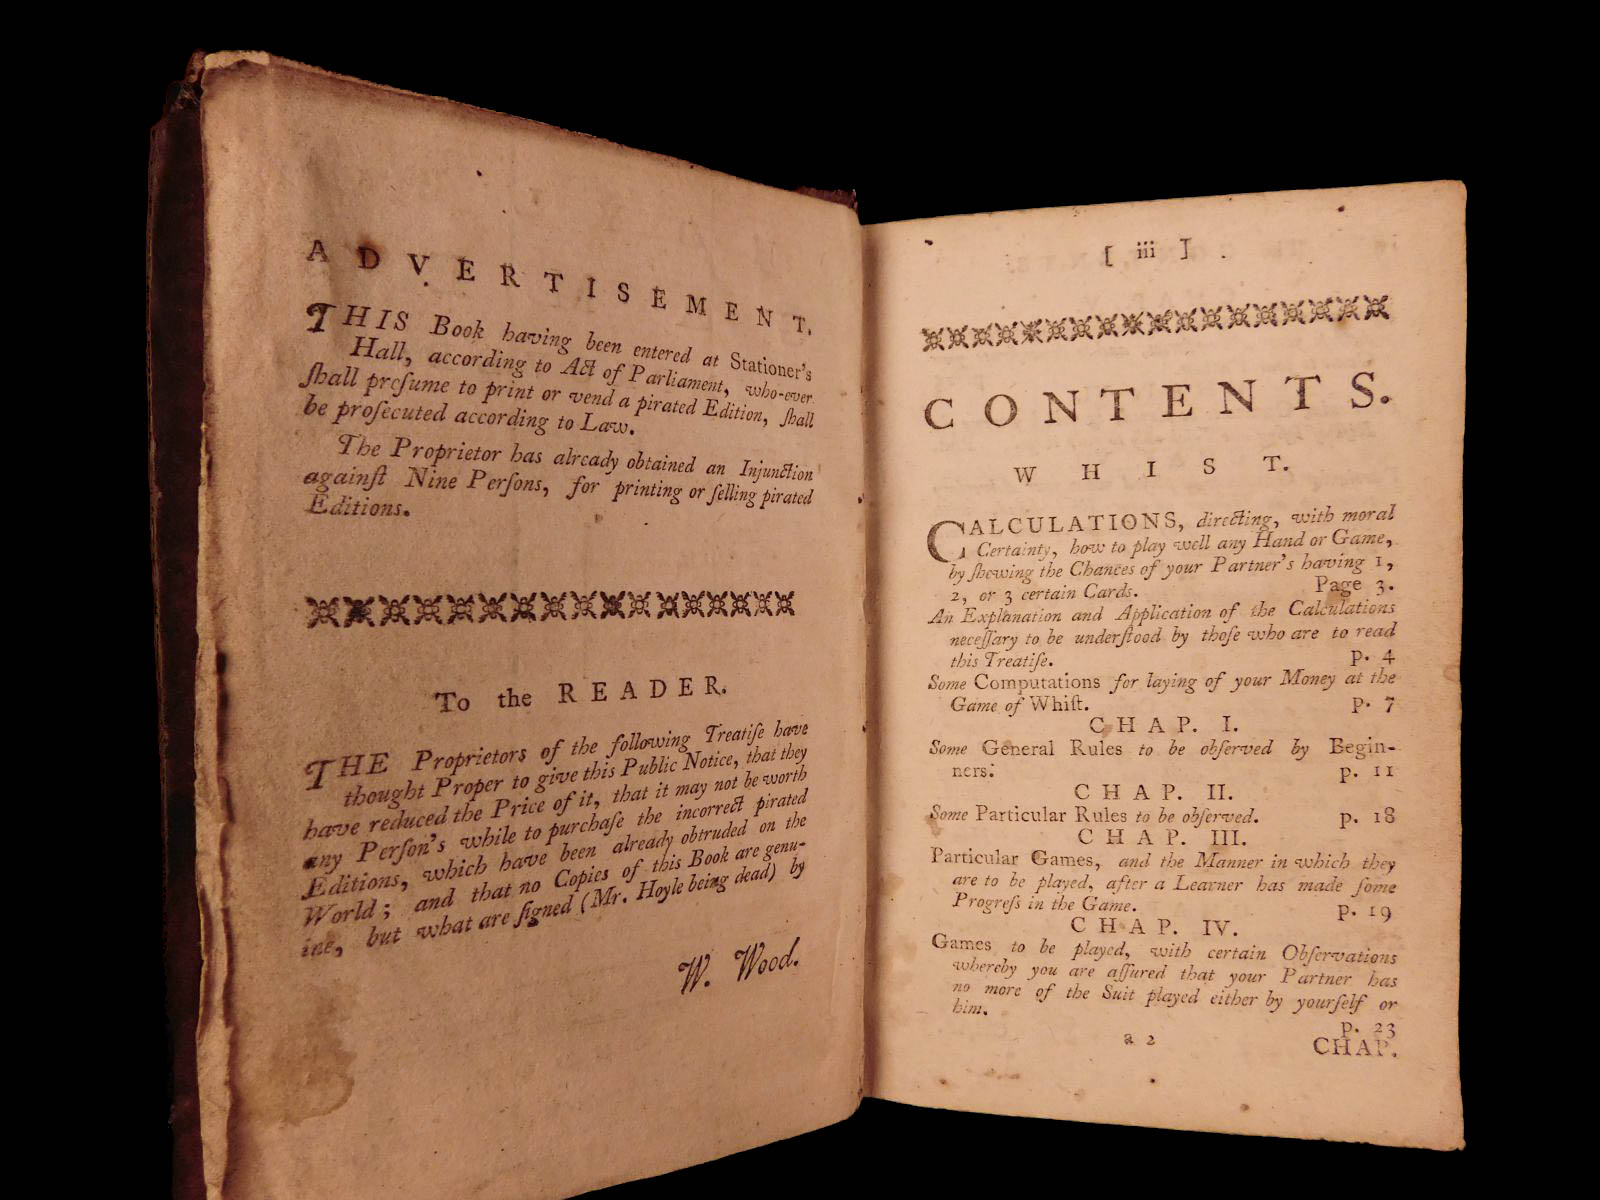 ADVERTISEMENT.
THIS Book having been entered at Stationer's
Hall, according to Act of Parliament, who-ever
ſhall preſume to print or vend a pirated Edition, ſhall
be proſecuted according to Law.
The Proprietor has already obtained an Injunction
againſt Nine Perſons, for printing or ſelling pirated
Editions.
To the READER.
THE Proprietors of the following Treatiſe have
thought Proper to give this Public Notice, that they
have reduced the Price of it, that it may not be worth
any Perſon's while to purchaſe the incorrect pirated
Editions, which have been already obtruded on the
World; and that no Copies of this Book are genu-
ine, but what are ſigned (Mr. Hoyle being dead) by
W. Wood.
[ iii ]
CONTENTS.
WHIST.
CALCULATIONS, directing, with moral
Certainty, how to play well any Hand or Game,
by ſhewing the Chances of your Partner's having 1,
2, or 3 certain Cards. Page 3.
An Explanation and Application of the Calculations
neceſſary to be underſtood by thoſe who are to read
this Treatiſe. p. 4
Some Computations for laying of your Money at the
Game of Whiſt. p. 7
CHAP. I.
Some General Rules to be obſerved by Begin-
ners. p. 11
CHAP. II.
Some Particular Rules to be obſerved. p. 18
CHAP. III.
Particular Games, and the Manner in which they
are to be played, after a Learner has made ſome
Progreſs in the Game. p. 19
CHAP. IV.
Games to be played, with certain Obſervations
whereby you are aſſured that your Partner has
no more of the Suit played either by yourſelf or
him.
p. 23
a 2
CHAP.